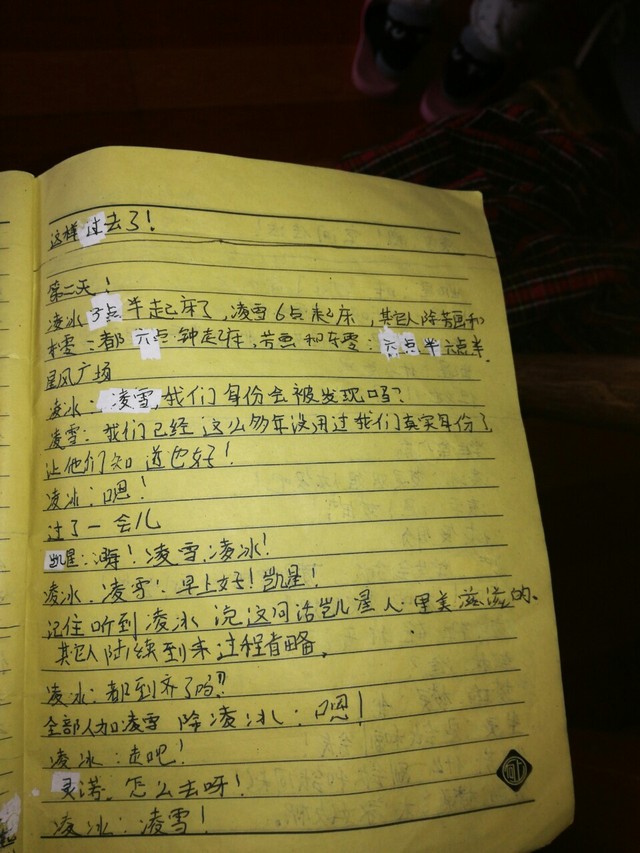 这样过去了!
第二天!
凌冰3点半起床了,凌雪6点起床,其它人除芳画和
冬雪:都六点钟起床,芳画和冬雪:六点半六点半.
星风广场
凌冰:凌雪,我们身份会被发现吗?
凌雪:我们已经这么多年没用过我们真实身份了,
让他们知道也好!
凌冰:嗯!
过了一会儿
凯星:嗨!凌雪,凌冰!
凌冰.凌雪:早上好!凯星!
记住听到凌冰说这句话凯星人里美滋滋的.
其它人陆续到来过程省略.
凌冰:都到齐了吗?
全部人加凌雪除凌冰:嗯!
凌冰:走吧!
灵诺:怎么去呀!
凌冰:凌雪!